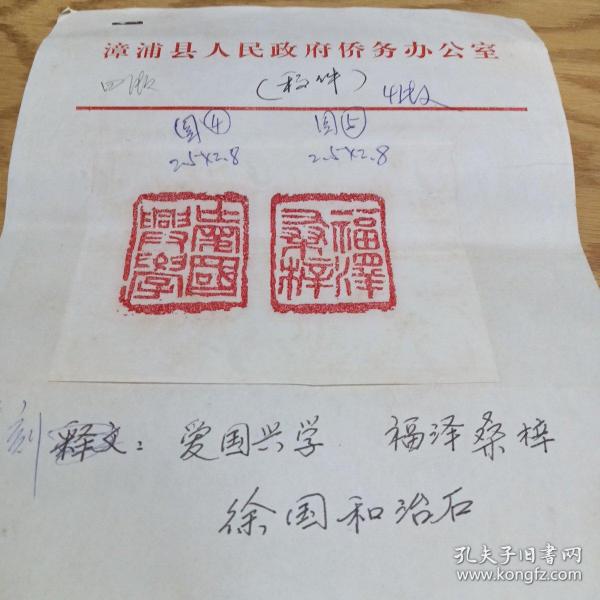 漳浦县人民政府侨务办公室
图④ 图⑤
2.5×2.8 2.5×2.8
愛國興學 福澤桑梓
刻 释文：爱国兴学 福泽桑梓
徐国和治石
孔夫子旧书网
www.kongfz.com